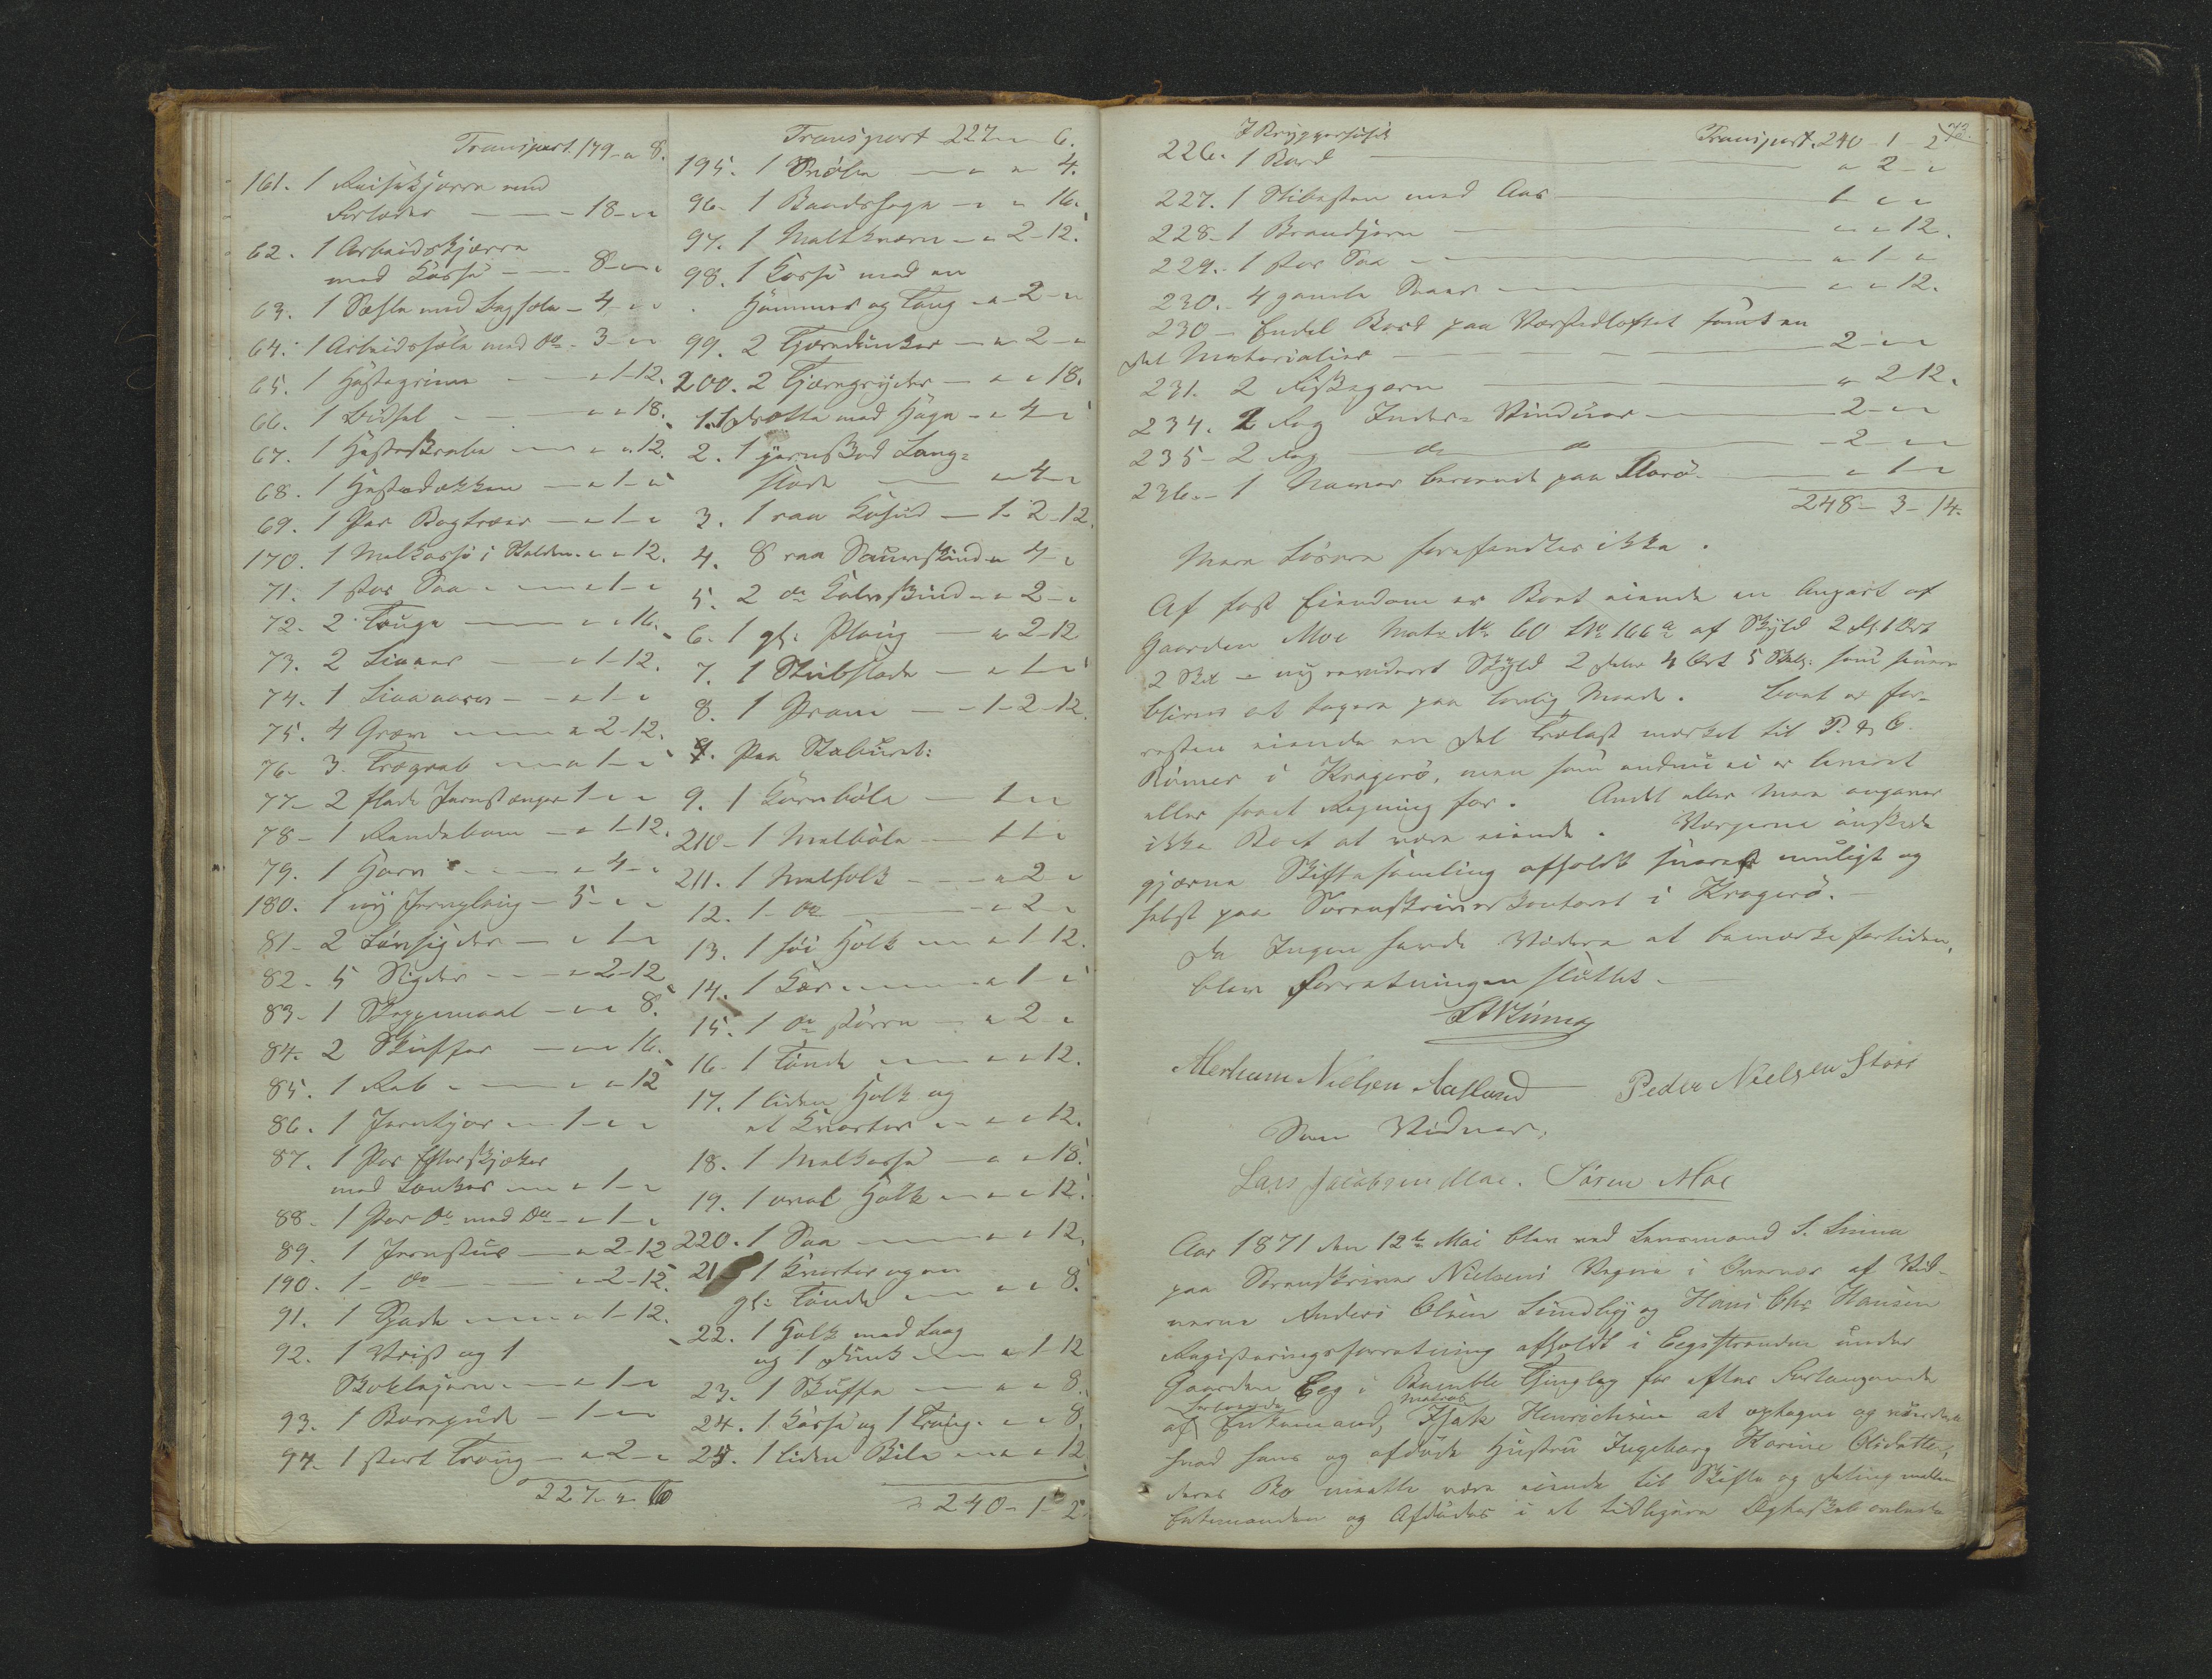 Transport 179 - " 8.
161. 1 Reisekjærre med
Forlæder — 18 - " "
62. 1 Arbeidskjærre
med Kasse — 8 - " "
63. 1 Sæhle med Bagsele - 4 - " "
64. 1 Arbeidssele med Do - 3 - " "
65. 1 Hestegrime — " 1-12.
66. 1 Bidsel — " " 18.
67. 1 Hesteskrabe — " " 12.
68. 1 Hestedækken — " 1 - "
69. 1 Par Bogtræer — " 1 - "
170. 1 Melkasse i Stalden - " " 12.
71. 1 stor Saa — " 1 - "
72. 2 Truge — " " 16.
73. 2 Liaaer — " 1-12.
74. 1 Liaaaarv — " 1 - "
75. 4 Græv — " 2-12.
76. 3 Trægreb — " 1 - "
77. 2 flade Jernstænger 1 - " "
78. 1 Rendebom — " 1-12.
79. 1 Harv — " 4 - "
180. 1 ny Jernploug - 5 - " "
81. 2 Løvsigder — " 1 - "
82. 5 Sigder — " 2-12
83. 1 Skjeppemaal — " " 8.
84. 2 Skuffer — " " 16.
85. 1 Reb — " " 12
86. 1 Jernkjør — 1 - " "
87. 1 Par Efterskjæker
med Lænker — " 1 - "
88. 1 Par Do med Do — " 1 - "
89. 1 Jernstör — " 2-12
190. 1 Do — " 2-12.
91. 1 Spade — " 1-12.
92. 1 Vrist og 1
Skoklejern — " 1 - "
93. 1 Børepude — 1 - " "
94. 1 stort Traug — " 2 - "
227 - " 6
Transport 227 - " 6.
195. 1 Snöre — " " 4.
96. 1 Baandhage — " " 16.
97. 1 Maltkværn — " 2-12.
98. 1 Kasse med en
Hammer og Tang - " 2 - "
99. 2 Tjæredunker — " 2 - "
200. 2 Tjæregryder — " " 18.
1. 1 Drætte med Hage - " 4 - "
2. 1 jernskod Lang-
slæde — " 4 - "
3. 1 raa Kohud — 1 - 2-12.
4. 8 raa Saueskind " 4 - "
5. 2 do Kalveskind " 2 - "
6. 1 gl. Ploug — " 2-12
7. 1 Stubslæde — " 1 - "
8. 1 Pram — 1-2-12.
Paa Staburet:
9. 1 Kornbøle — 1 - " "
210. 1 Melbøle — 1 1 - "
211. 1 Melholk — " 2 - "
12. 1 do — " 2 - "
13. 1 höi Holk — " 1 12.
14. 1 Kar — " 1 - "
15. 1 do större — " 2 - "
16. 1 Tönde — " " 12.
17. 1 liden Holk og
et Kvarter — " " 12.
18. 1 Melkasse — " " 18.
19. 1 oval Holk — " " 12.
220. 1 Saa — " " 12.
21. 1 Kvarter og en
gl: Tönde — " " 8.
22. 1 Holk med Laag
og 1 Dunk — " 1-12
23. 1 Skuffe — " " 8.
24. 1 Kasse og 1 Traug. " " 8.
25. 1 liden Bile — " " 12
240 - 1 - 2
73.
I Bryggerhuset Transport. 240 - 1 - 2
226. 1 Bord — " 2 - "
227. 1 Slibesten med Aas — 1 " "
228. 1 Brandjern — " " 12.
229. 1 stor Saa — " 1 - "
230. 4 gamle Saaer — " " 12.
230 - Endel Bord paa Værstedloftet samt en
del Materialier — 2 - " "
231. 2 Fiskegarn — " 2 12.
234. 2 Fag Inder- Vinduer — 2 - " "
235 - 2 Fag do do — 2 - " "
236. - 1 Naver beroende paa Skarø — " 1 - "
248 - 3 - 14.
Mere Løsøre forefandtes ikke.
Af fast Eiendom er Boet eiende en Anpart af
Gaarden Moe Matr No 60 LNo 166a af Skyld 2 dl 1 Ort
2 Sk - ny revideret Skyld 2 Daler 4 Ort 5 Skil: som senere
bliver at tagere paa lovlig Maade. Boet er for-
resten eiende en Del Trælast mærket til P. & C.
Rømer i Kragerö, men som endnu ei er leveret
eller faaet Regning for. Andet eller mere angaves
ikke Boet at være eiende. Værgerne önskede
gjerne Skiftesamling afholdt snarest muligt og
helst paa Sorenskriverkontoret i Kragerö. —
Da Ingen havde Videre at bemærke fortiden,
blev Forretningen sluttet. —
Abraham Nielsen Aasland Peder Nielsen Stöss
Som Vidner,
Lars Jacobsen Moe. Søren Moe
Aar 1871 den 12te Mai blev ved Lensmand S. Linna
paa Sorenskriver Nielsens Vegne i Overvær af Vid-
nerne Anders Olsen Lundby og Hans Chr Hansen
Registeringsforretning afholdt i Eegstranden under
Gaarden Eeg i Bamble Thinglag for efter Forlangende
af Enkemand, Matros Isak Henrichsen at optegne og vurdere
hvad hans og afdøde Hustru Ingeborg Karine Olsdatters
deres Bo maatte være eiende til Skifte og Deling mellem
Enkemanden og Afdødes i et tidligere Ægteskab avlede